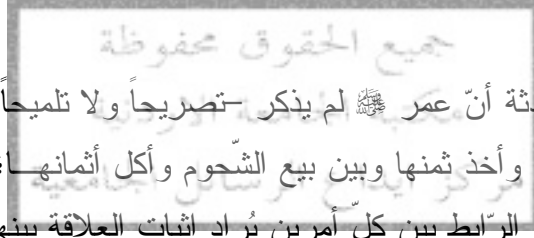 جميع الحقوق محفوظة
دثة أنّ عمر ﷺ لم يذكر –تصريحاً ولا تلميحاً
وأخذ ثمنها وبين بيع الشّحوم وأكل أثمانهـا
مركز ايداع الرسائل الجامعية
الرّابط بين كلّ أمرين يُراد إثبات العلاقة بينه